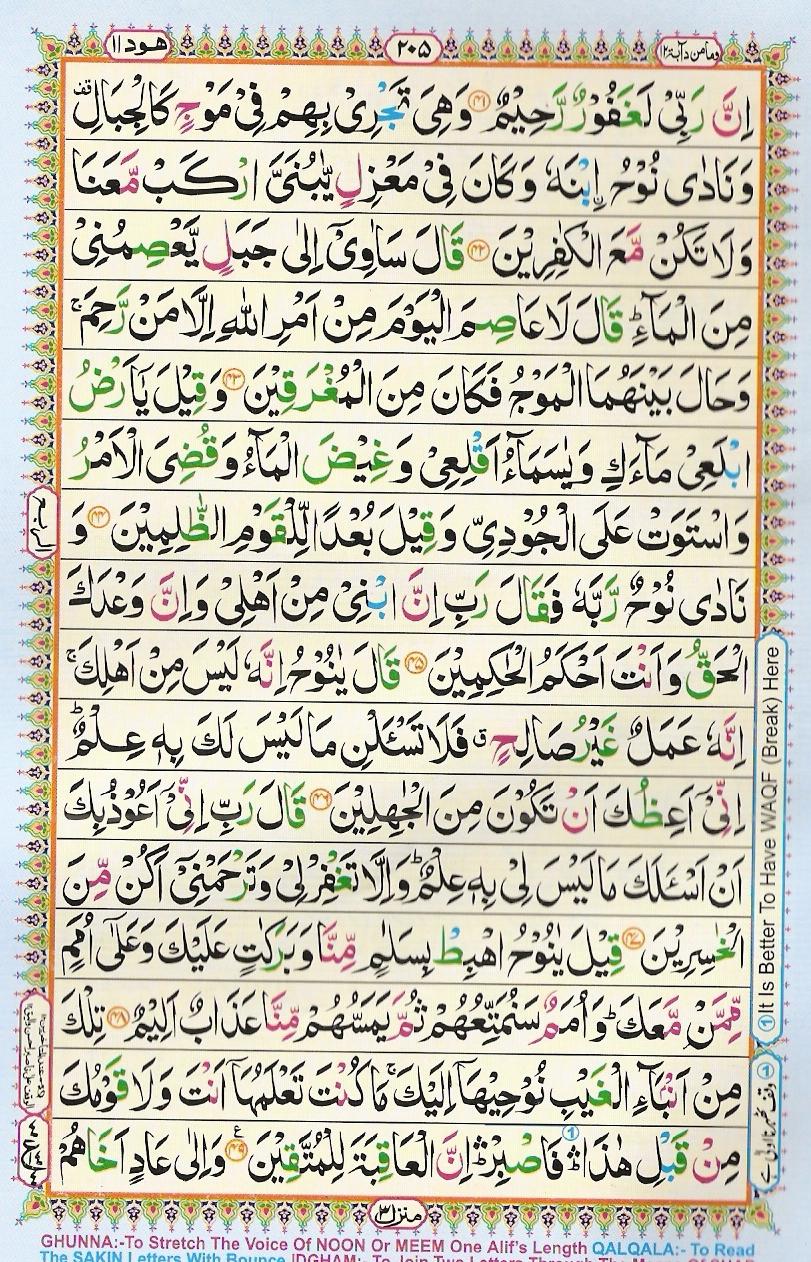 وما من دآبة ١٢
٢٠٥
هود ١١
اِنَّ رَبِّىْ لَغَفُوْرٌ رَّحِيْمٌ ﴿۴۱﴾ وَهِىَ تَجْرِىْ بِهِمْ فِىْ مَوْجٍ كَالْجِبَالِ ۫
وَنَادٰى نُوْحُ اِۨبْنَهٗ وَكَانَ فِىْ مَعْزِلٍ يّٰبُنَىَّ ارْكَبْ مَّعَنَا
وَلَا تَكُنْ مَّعَ الْكٰفِرِيْنَ ﴿۴۲﴾ قَالَ سَاٰوِىْۤ اِلٰى جَبَلٍ يَّعْصِمُنِىْ
مِنَ الْمَآءِ ؕ قَالَ لَا عَاصِمَ الْيَوْمَ مِنْ اَمْرِ اللّٰهِ اِلَّا مَنْ رَّحِمَ ۚ
وَحَالَ بَيْنَهُمَا الْمَوْجُ فَكَانَ مِنَ الْمُغْرَقِيْنَ ﴿۴۳﴾ وَقِيْلَ يٰۤاَرْضُ
ابْلَعِىْ مَآءَكِ وَيٰسَمَآءُ اَقْلِعِىْ وَغِيْضَ الْمَآءُ وَقُضِىَ الْاَمْرُ
وَاسْتَوَتْ عَلَى الْجُوْدِىِّ وَقِيْلَ بُعْدًا لِّلْقَوْمِ الظّٰلِمِيْنَ ﴿۴۴﴾ وَ
نَادٰى نُوْحٌ رَّبَّهٗ فَقَالَ رَبِّ اِنَّ ابْنِىْ مِنْ اَهْلِىْ وَاِنَّ وَعْدَكَ
الْحَقُّ وَاَنْتَ اَحْكَمُ الْحٰكِمِيْنَ ﴿۴۵﴾ قَالَ يٰنُوْحُ اِنَّهٗ لَيْسَ مِنْ اَهْلِكَ ۚ
اِنَّهٗ عَمَلٌ غَيْرُ صَالِحٍ ۖ فَلَا تَسْـَٔلْنِ مَا لَيْسَ لَكَ بِهٖ عِلْمٌ ؕ
اِنِّىْۤ اَعِظُكَ اَنْ تَكُوْنَ مِنَ الْجٰهِلِيْنَ ﴿۴۶﴾ قَالَ رَبِّ اِنِّىْۤ اَعُوْذُ بِكَ
اَنْ اَسْـَٔلَكَ مَا لَيْسَ لِىْ بِهٖ عِلْمٌ ؕ وَاِلَّا تَغْفِرْ لِىْ وَتَرْحَمْنِىْۤ اَكُنْ مِّنَ
الْخٰسِرِيْنَ ﴿۴۷﴾ قِيْلَ يٰنُوْحُ اهْبِطْ بِسَلٰمٍ مِّنَّا وَبَرَكٰتٍ عَلَيْكَ وَعَلٰٓى اُمَمٍ
مِّمَّنْ مَّعَكَ ؕ وَاُمَمٌ سَنُمَتِّعُهُمْ ثُمَّ يَمَسُّهُمْ مِّنَّا عَذَابٌ اَلِيْمٌ ﴿۴۸﴾ تِلْكَ
مِنْ اَنْۢبَآءِ الْغَيْبِ نُوْحِيْهَاۤ اِلَيْكَ ۚ مَا كُنْتَ تَعْلَمُهَاۤ اَنْتَ وَلَا قَوْمُكَ
مِنْ قَبْلِ هٰذَا ۛؕ① فَاصْبِرْ ۛؕ اِنَّ الْعَاقِبَةَ لِلْمُتَّقِيْنَ ﴿۴۹﴾ ع وَاِلٰى عَادٍ اَخَاهُمْ
① It Is Better To Have WAQF (Break) Here
الربع
منزل ٣
GHUNNA:-To Stretch The Voice Of NOON Or MEEM One Alif's Length QALQALA:- To Read
The SAKIN Letters With Bounce IDGHAM:- To Join Two Letters Through The